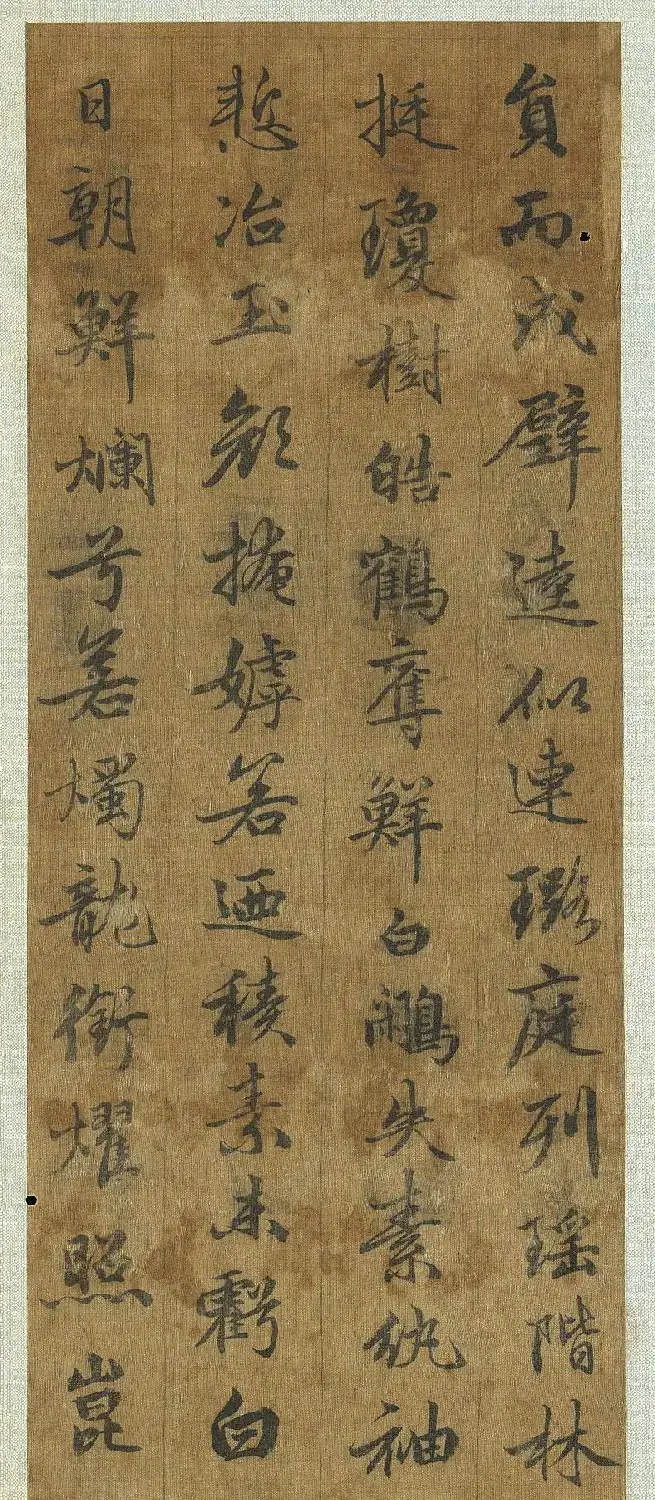 員而成璧逵似連璐庭列瑤階林
挺瓊樹皓鶴奪鮮白鷳失素紈袖
慙冶玉顔掩嫮若迺積素未虧白
日朝鮮爛兮若燭龍銜燿照崑